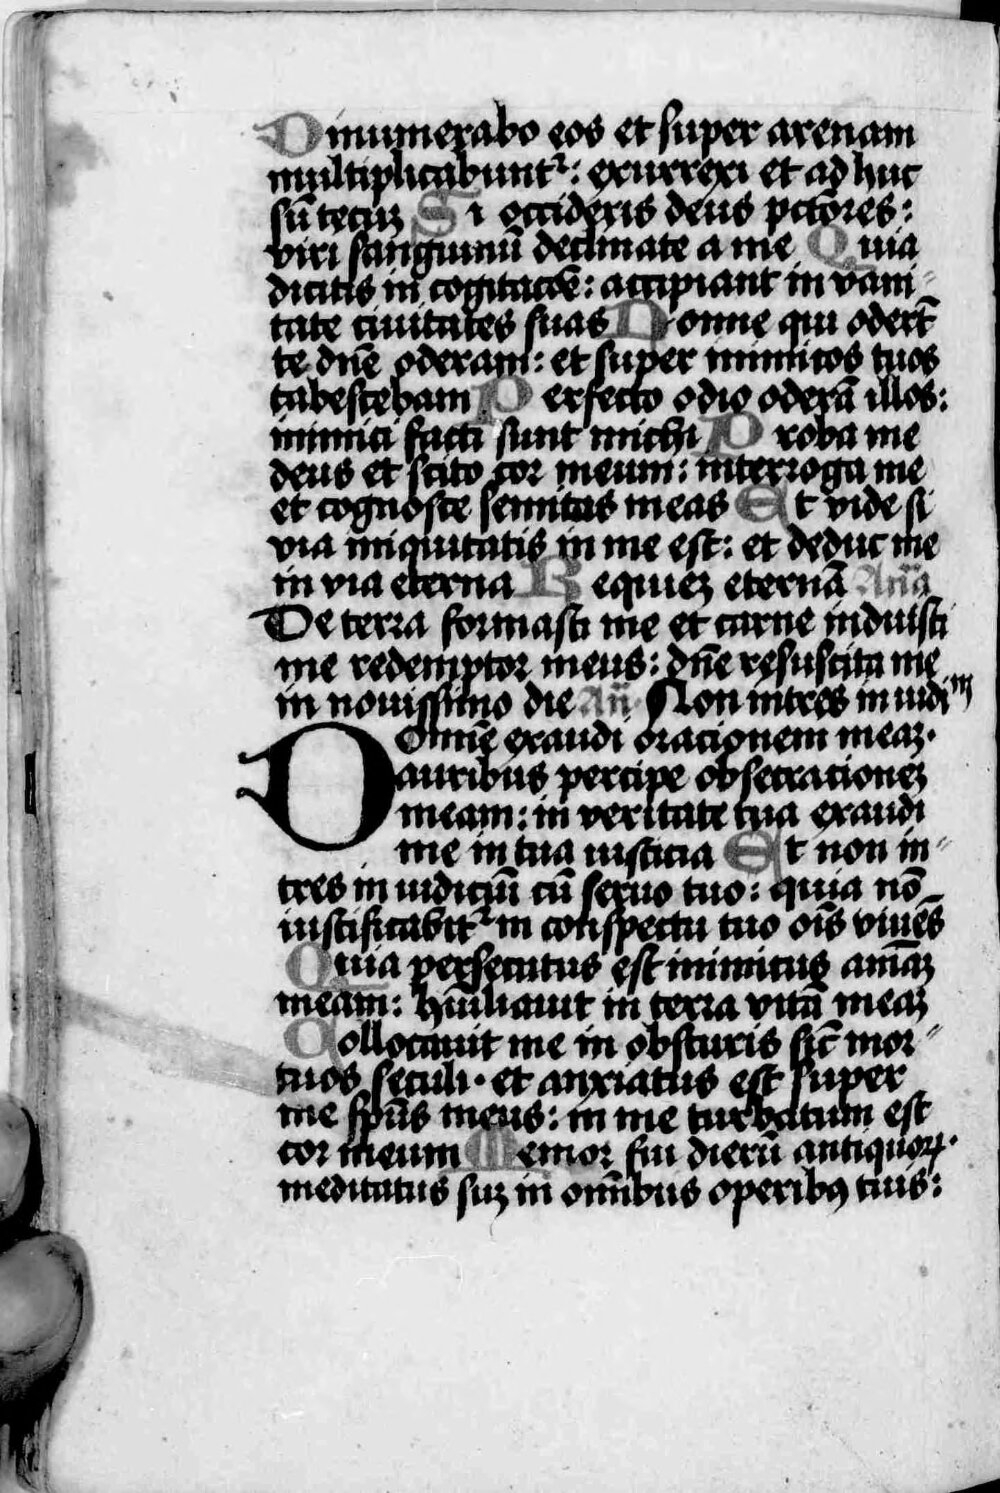 Dinumerabo eos et super arenam
multiplicabunt᷑: exurrexi et ad huc
sū tecuz Si occideris deus pctōres:
viri sanguinū declinate a me Quia
dicitis in cogitacōe: accipiant in vani-
tate ciuitates suas Nonne qui odert̄
te dn̄e oderam: et super inimicos tuos
tabescebam Perfecto odio oderā illos:
inimici facti sunt michi Proba me
deus et scito cor meum: interroga me
et cognosce semitas meas Et vide si
via iniquitatis in me est: et deduc me
in via eterna Requiez eternā Ana
De terra formasti me et carne induisti
me redemptor meus: dn̄e resuscita me
in nouissimo die An̄ Non intres in iudim
Domīe exaudi oracionem meaz.
auribus percipe obsecracionez
meam: in veritate tua exaudi
me in tua iusticia Et non in-
tres in iudiciū cū seruo tuo: quia nō
iustificabit᷑ in conspectu tuo oīs viuēs
Quia persecutus est inimicus aīaz
meam: hūiliauit in terra vitā meaz
Collocauit me in obscuris sic̄ mor-
tuos seculi. et anxiatus est super
me sp̄us meus: in me turbatum est
cor meum Memor fui dierū antiquoꝝ.
meditatus suz in om̄ibus operibꝯ tuis: